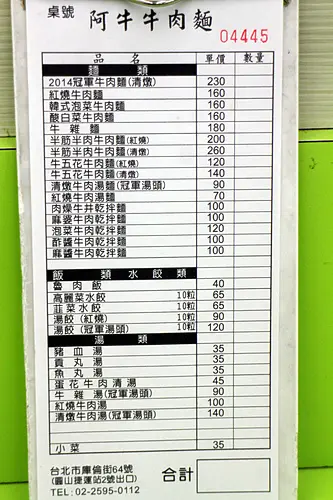 桌號 阿牛牛肉麵
04445
品名 單價 數量
麵類
2014冠軍牛肉麵(清燉) 230
紅燒牛肉麵 160
韓式泡菜牛肉麵 160
酸白菜牛肉麵 160
牛雜麵 180
半筋半肉牛肉麵(紅燒) 200
半筋半肉牛肉麵(清燉) 260
牛五花牛肉麵(紅燒) 120
牛五花牛肉麵(清燉) 140
清燉牛肉湯麵(冠軍湯頭) 90
紅燒牛肉湯麵 70
肉燥牛丼乾拌麵 100
麻婆牛肉乾拌麵 100
泡菜牛肉乾拌麵 120
酢醬牛肉乾拌麵 100
麻醬牛肉乾拌麵 100
飯類水餃類
魯肉飯 40
高麗菜水餃 10粒 65
韮菜水餃 10粒 65
湯餃(紅燒) 10粒 90
湯餃(冠軍湯頭) 10粒 120
湯類
豬血湯 35
貢丸湯 35
魚丸湯 35
蛋花牛肉清湯 45
牛雜湯(冠軍湯頭) 90
紅燒牛肉湯 100
清燉牛肉湯(冠軍湯頭) 140
小菜 35
台北市庫倫街64號
(圓山捷運站2號出口)
TEL: 02-2595-0112
合計